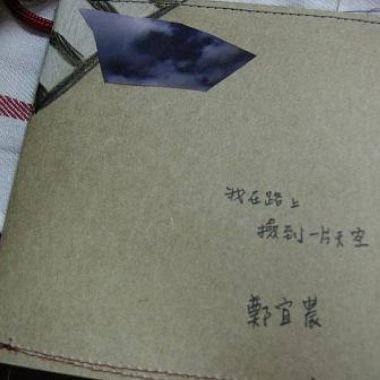 我在路上
撿到一片天空
鄭宜農